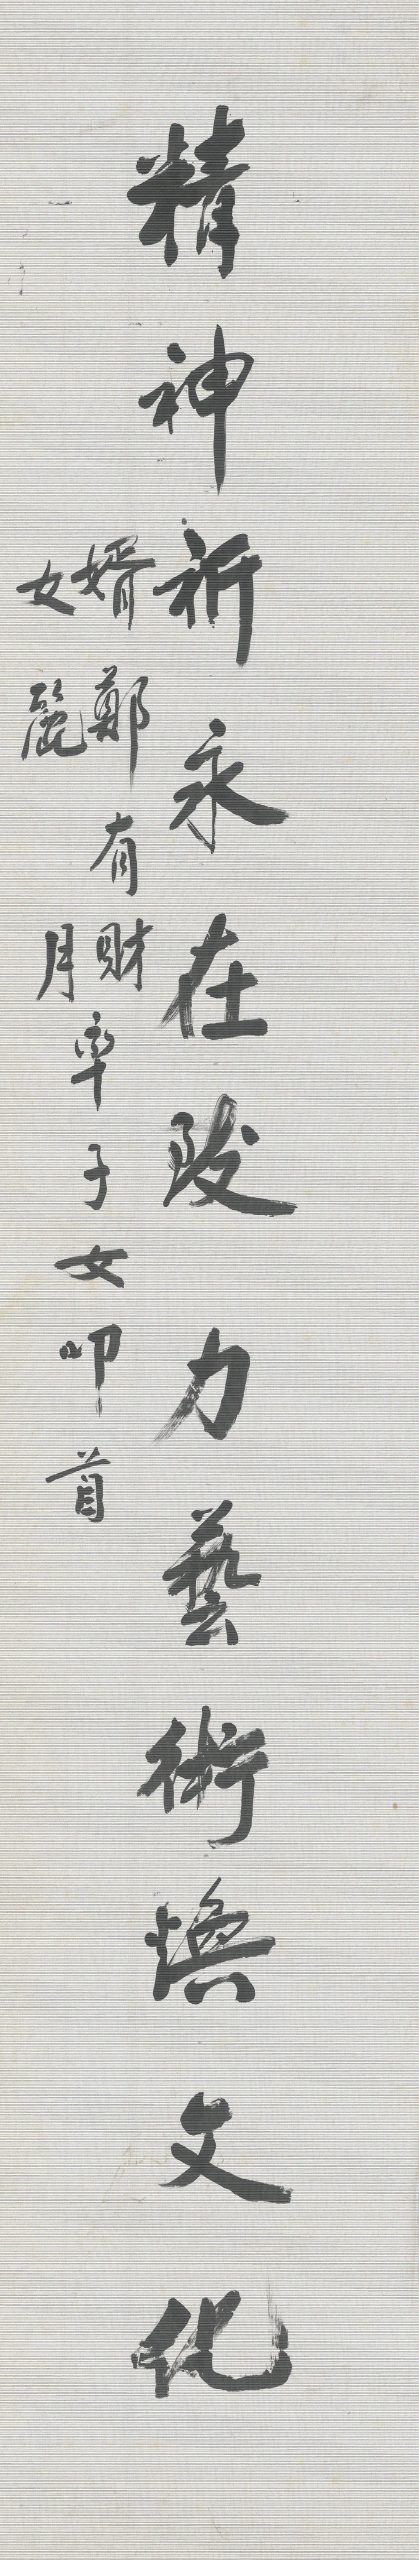 精神祈永在力藝術煥文化
婿鄭有財
女麗月
率子女叩首